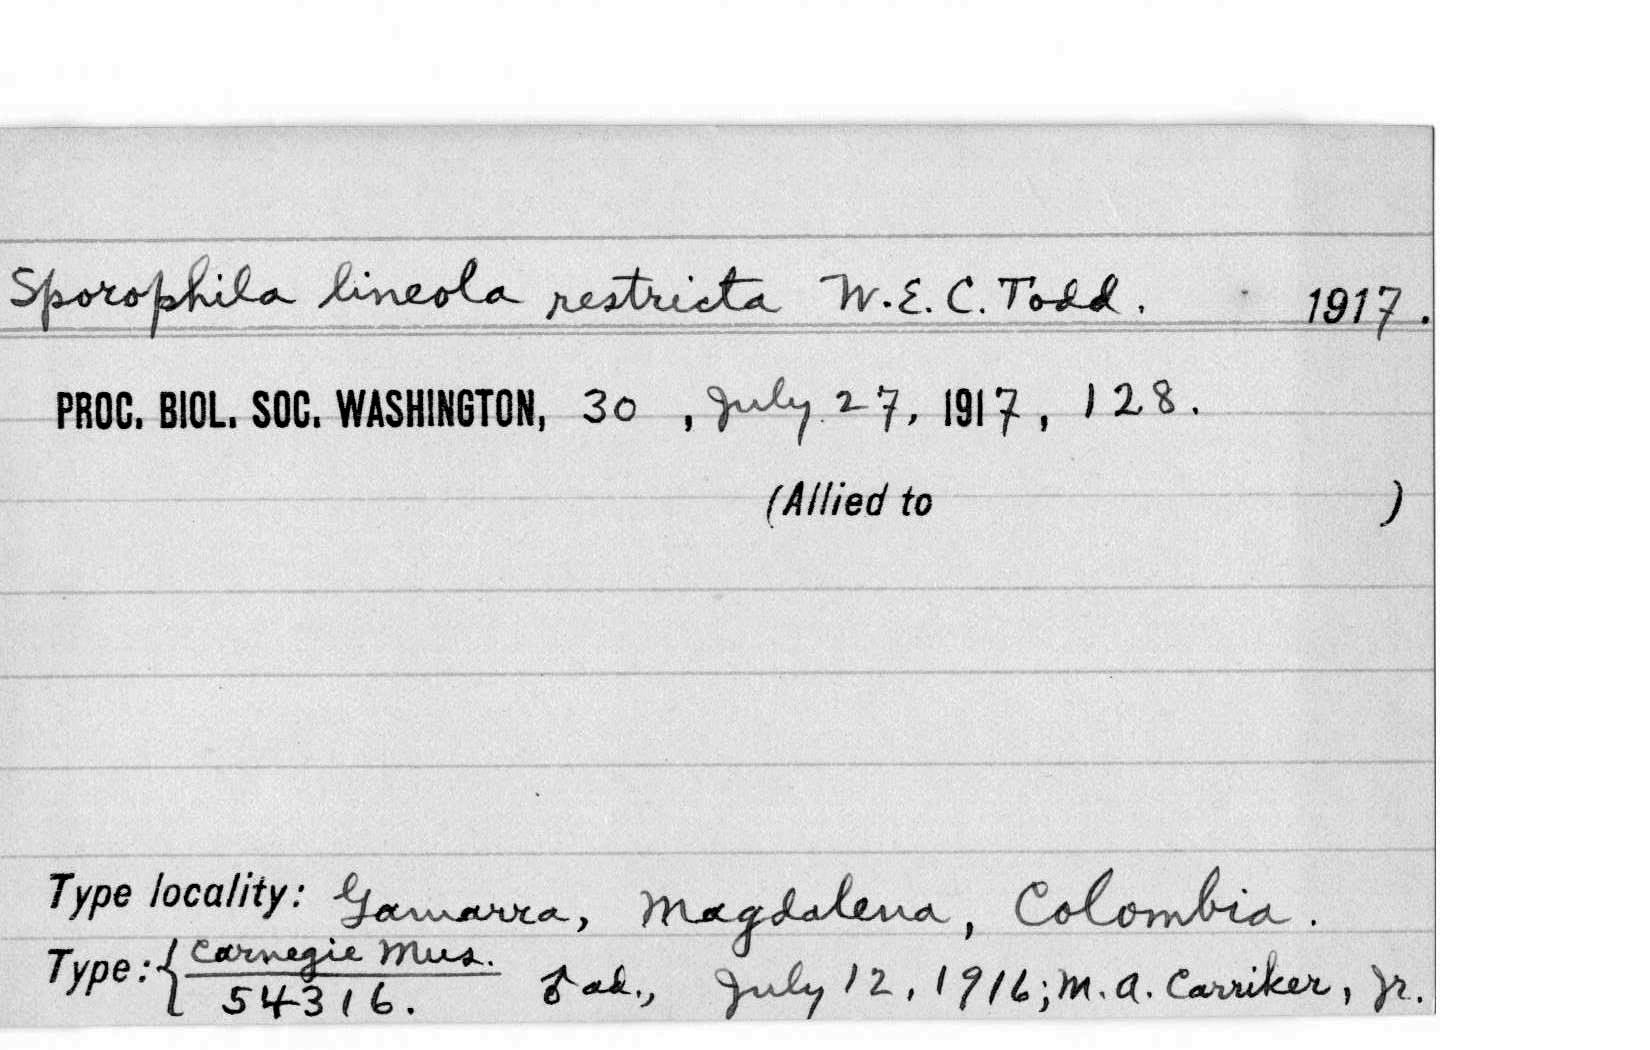 Sporophila lineola restricta W.E.C. Todd. 1917.
PROC. BIOL. SOC. WASHINGTON, 30, July 27, 1917, 128.
(Allied to )
Type locality: Gamarra, Magdalena, Colombia.
Type: { Carnegie Mus.
54316. ♂ ad., July 12, 1916; M. A. Carriker, Jr.